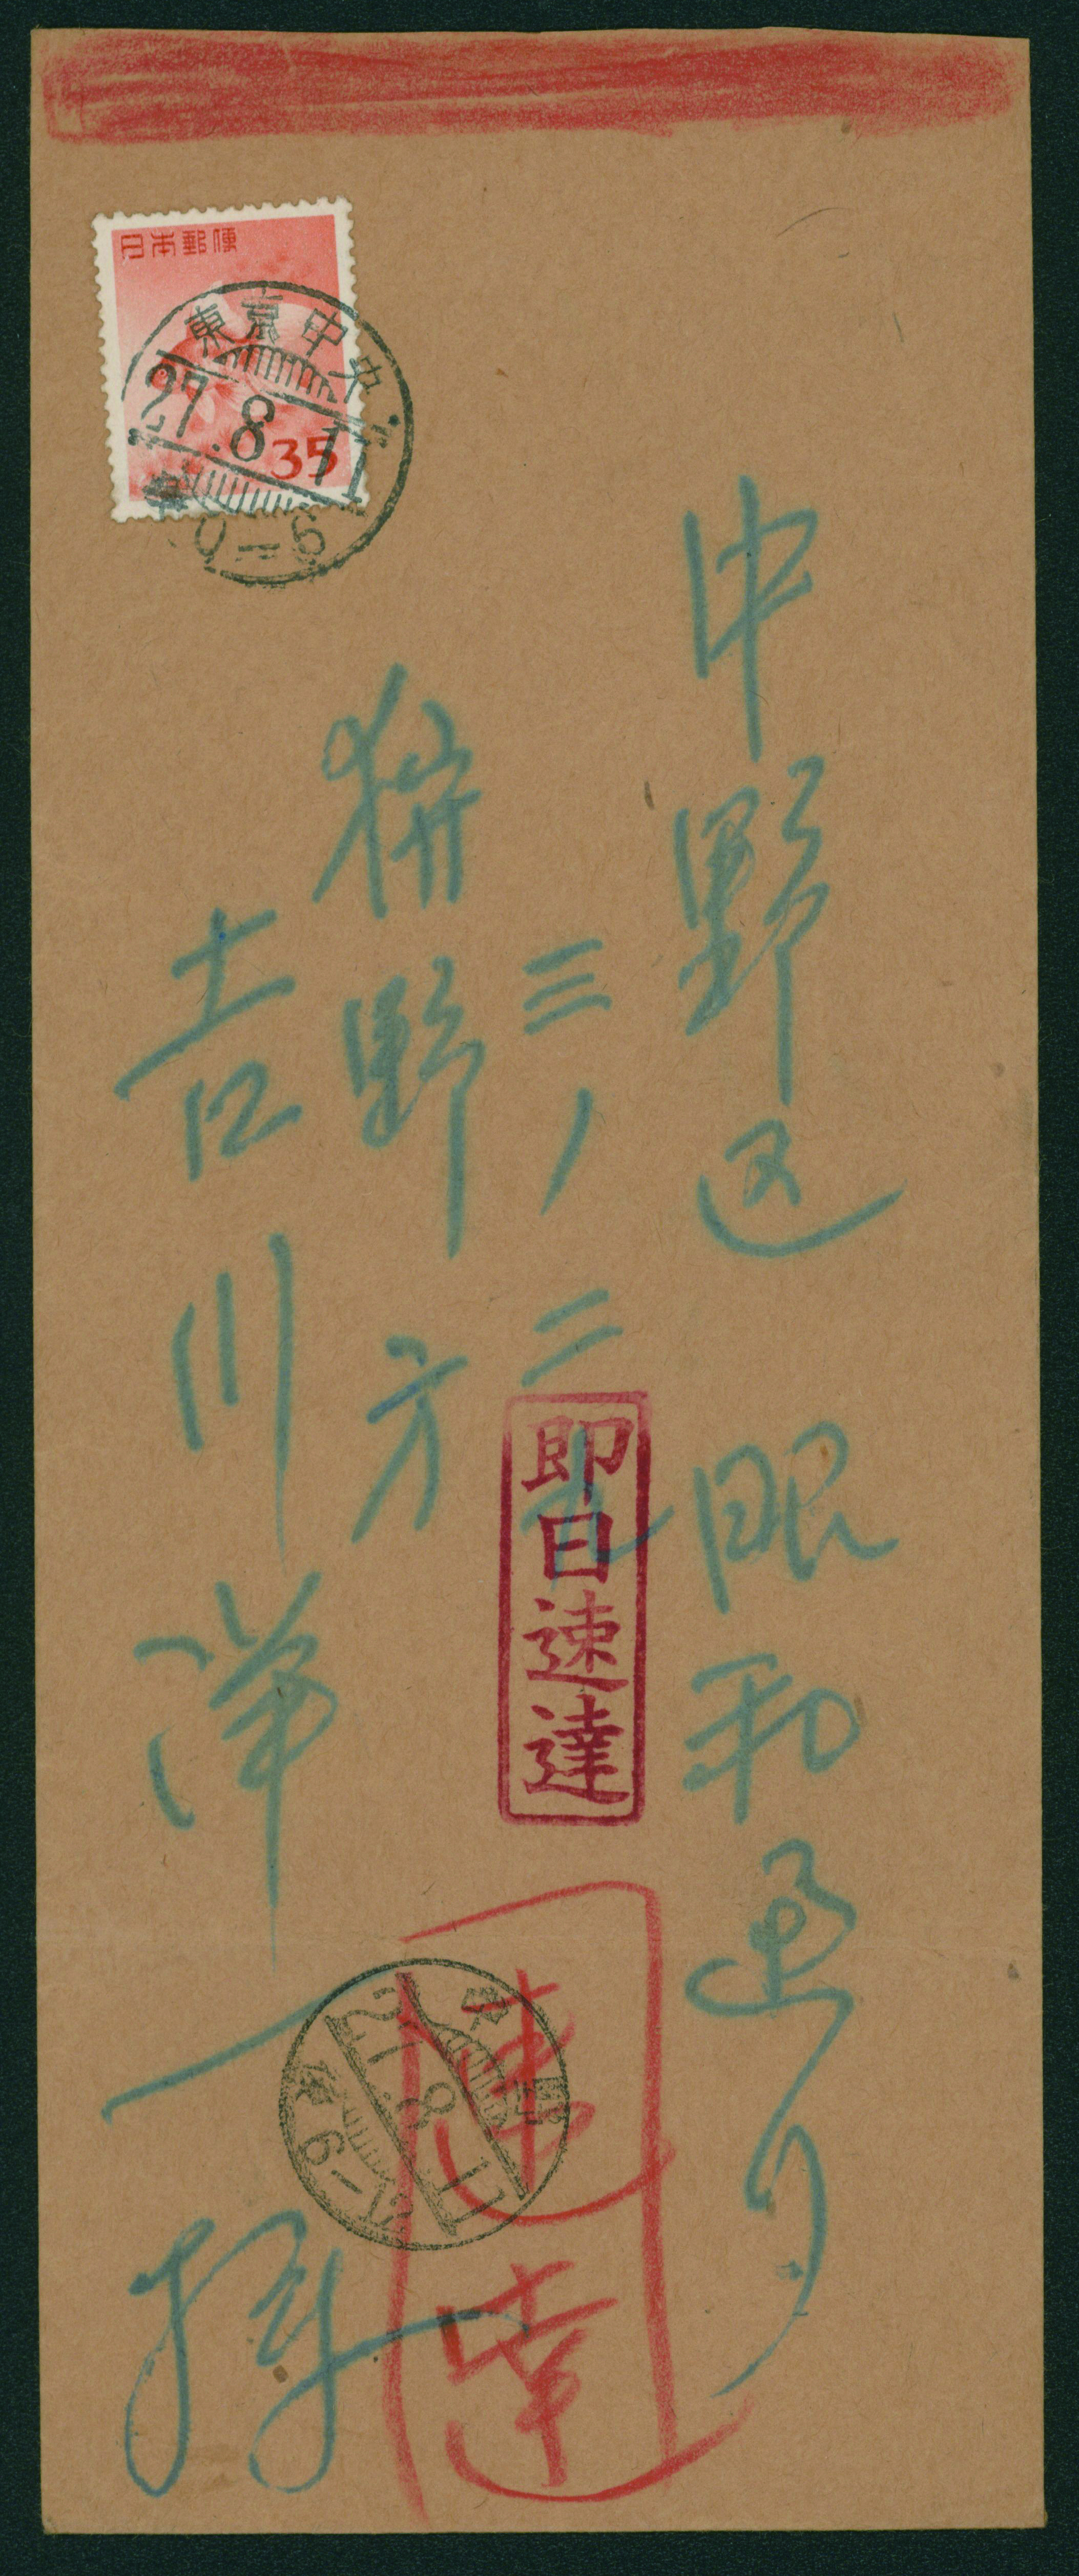 日本郵便
35
東京中央
27.8.11
0-6
中野区 昭和通り
三ノ二九
狩野方
吉川洋一様
即日速達
速達
中野
27.8.11
6-12